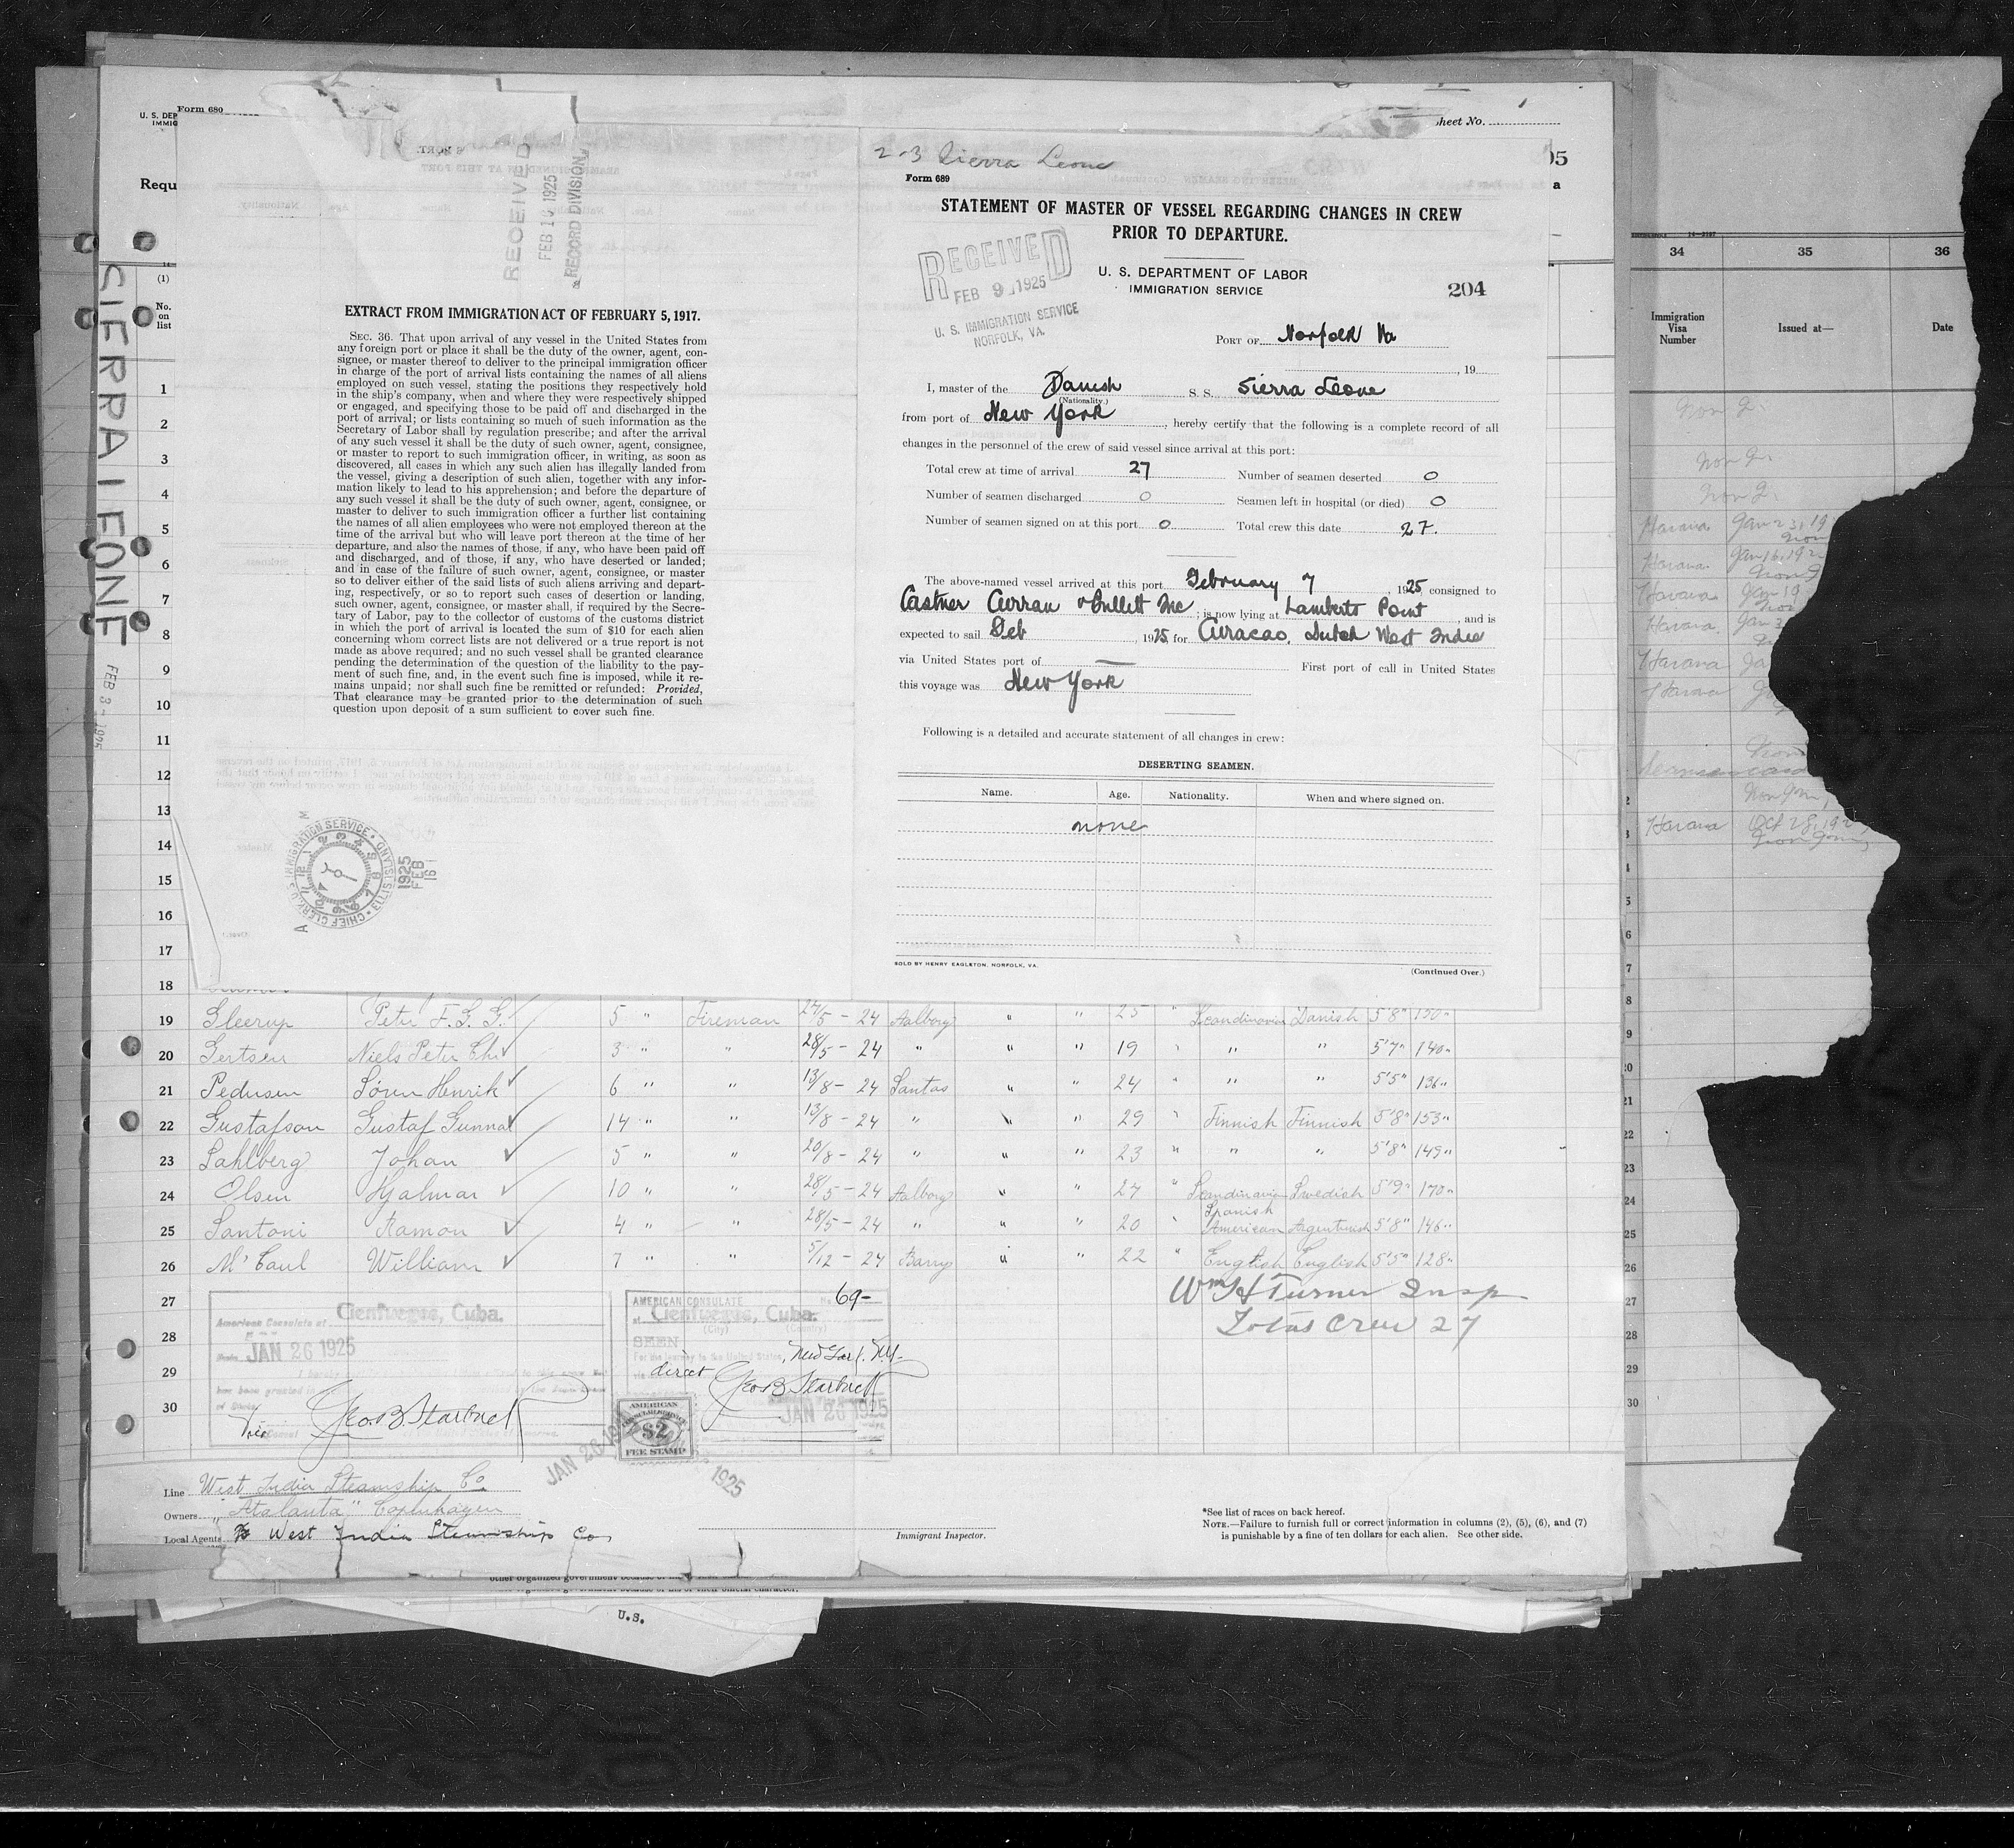 Form 680
U. S. DEP
IMMIG
Sheet No.
Requ
SIERRA LEONE
FEB 3 - 1925
RECEIVED
FEB 16 1925
RECORD DIVISION
EXTRACT FROM IMMIGRATION ACT OF FEBRUARY 5, 1917.
SEC. 36. That upon arrival of any vessel in the United States from
any foreign port or place it shall be the duty of the owner, agent, con-
signee, or master thereof to deliver to the principal immigration officer
in charge of the port of arrival lists containing the names of all aliens
employed on such vessel, stating the positions they respectively hold
in the ship's company, when and where they were respectively shipped
or engaged, and specifying those to be paid off and discharged in the
port of arrival; or lists containing so much of such information as the
Secretary of Labor shall by regulation prescribe; and after the arrival
of any such vessel it shall be the duty of such owner, agent, consignee,
or master to report to such immigration officer, in writing, as soon as
discovered, all cases in which any such alien has illegally landed from
the vessel, giving a description of such alien, together with any infor-
mation likely to lead to his apprehension; and before the departure of
any such vessel it shall be the duty of such owner, agent, consignee, or
master to deliver to such immigration officer a further list containing
the names of all alien employees who were not employed thereon at the
time of the arrival but who will leave port thereon at the time of her
departure, and also the names of those, if any, who have been paid off
and discharged, and of those, if any, who have deserted or landed;
and in case of the failure of such owner, agent, consignee, or master
so to deliver either of the said lists of such aliens arriving and depart-
ing, respectively, or so to report such cases of desertion or landing,
such owner, agent, consignee, or master shall, if required by the Secre-
tary of Labor, pay to the collector of customs of the customs district
in which the port of arrival is located the sum of $10 for each alien
concerning whom correct lists are not delivered or a true report is not
made as above required; and no such vessel shall be granted clearance
pending the determination of the question of the liability to the pay-
ment of such fine, and, in the event such fine is imposed, while it re-
mains unpaid; nor shall such fine be remitted or refunded: Provided,
That clearance may be granted prior to the determination of such
question upon deposit of a sum sufficient to cover such fine.
1925
FEB
16
2-3 Sierra Leone
Form 689
STATEMENT OF MASTER OF VESSEL REGARDING CHANGES IN CREW
PRIOR TO DEPARTURE.
RECEIVED
FEB 9 1925
U. S. IMMIGRATION SERVICE
NORFOLK, VA.
U. S. DEPARTMENT OF LABOR
IMMIGRATION SERVICE
204
PORT OF Norfolk Va
, 19
I, master of the Danish S. S. Sierra Leone
(Nationality.)
from port of New York, hereby certify that the following is a complete record of all
changes in the personnel of the crew of said vessel since arrival at this port:
Total crew at time of arrival 27 Number of seamen deserted 0
Number of seamen discharged 0 Seamen left in hospital (or died) 0
Number of seamen signed on at this port 0 Total crew this date 27.
The above-named vessel arrived at this port February 7 1925, consigned to
Castner Curran & Bullett Inc; is now lying at Lamberts Point, and is
expected to sail Feb, 1925 for Curacao, Dutch West Indie
via United States port of — First port of call in United States
this voyage was New York
Following is a detailed and accurate statement of all changes in crew:
DESERTING SEAMEN.
Name. Age. Nationality. When and where signed on.
none
SOLD BY HENRY EAGLETON, NORFOLK, VA.
(Continued Over.)
34 35 36
Immigration Visa Number Issued at— Date
(1)
No. on list
1
2
3
4
5
6
7
8
9
10
11
12
13
14
15
16
17
18
19 Gleerup Peter F. G. G. 5 " Fireman 27/5 - 24 Aalborg " " 25 " Scandinavian Danish 5'8" 150"
20 Gertsen Niels Peter Chr 3 " " 28/5 - 24 " " " 19 " " " 5'7" 140"
21 Pedersen Søren Henrik 6 " " 13/8 - 24 Santos " " 24 " " " 5'5" 136"
22 Gustafson Gustaf Gunnar 14 " " 13/8 - 24 " " " 29 " Finnish Finnish 5'8" 153"
23 Sahlberg Johan 5 " " 20/8 - 24 " " " 23 " " " 5'8" 149"
24 Olsen Hjalmar 10 " " 28/5 - 24 Aalborg " " 27 " Scandinavian Swedish 5'9" 170"
25 Santoni Ramon 4 " " 28/5 - 24 " " " 20 " Spanish American Argentinish 5'8" 146"
26 Mc Caul William 7 " " 5/12 - 24 Barry " " 22 " English English 5'5" 128"
27 69- Wm H Turner Insp
28 Total Crew 27
29
30
American Consulate at Cienfuegos, Cuba.
JAN 26 1925
Geo B Starbuck
Vice Consul
AMERICAN CONSULATE
Cienfuegos, Cuba.
(City) (Country)
SEEN
For the journey to the United States
New York. N.Y.
direct
Geo B Starbuck
JAN 26 1925
AMERICAN
CONSULAR SERVICE
$2
FEE STAMP
JAN 26 1925
Line West India Steamship Co.
Owners "Atalanta" Copenhagen
Local Agents West India Steamship Co.
Immigrant Inspector.
*See list of races on back hereof.
NOTE.—Failure to furnish full or correct information in columns (2), (5), (6), and (7)
is punishable by a fine of ten dollars for each alien. See other side.
U.S.